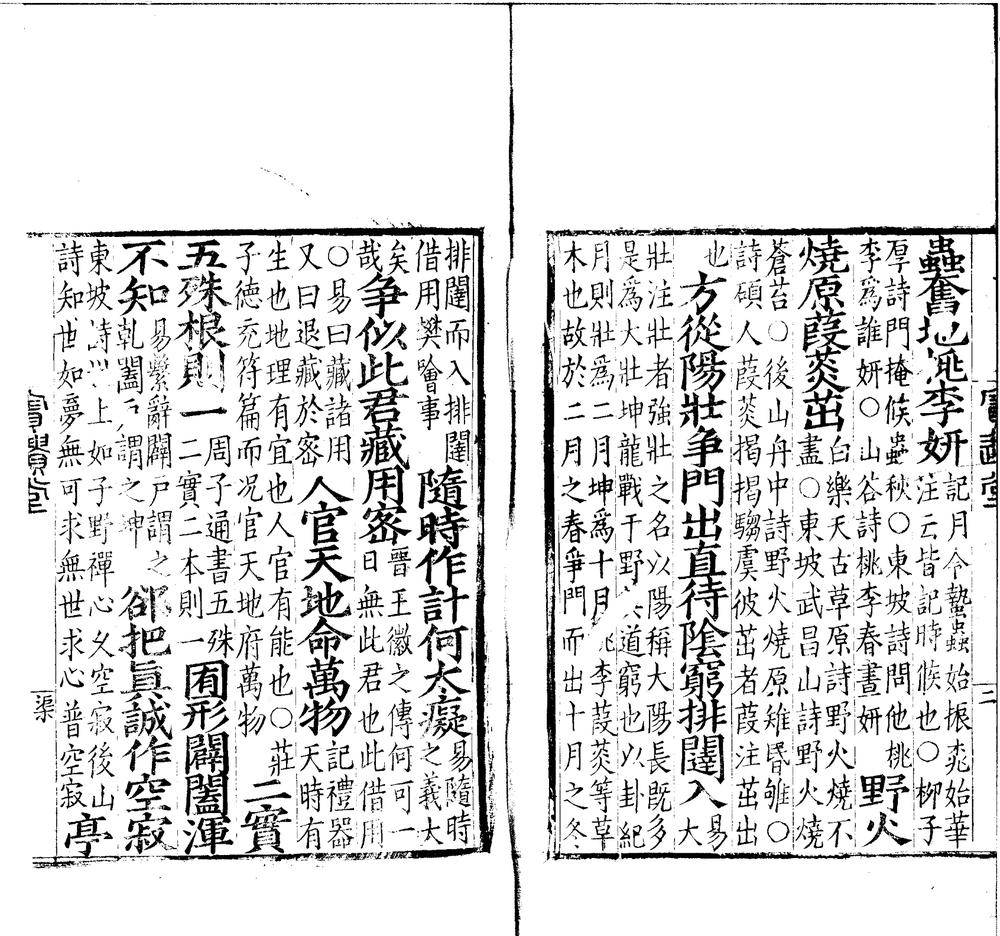 蟲奮地李妍
記月令蟄蟲始振桃始華
注云皆記時候也○柳子
厚詩門掩候蟲秋○東坡詩問他桃
李爲誰妍○山谷詩桃李春晝妍
野火
燒原葭菼茁
白樂天古草原詩野火燒不
盡○東坡武昌山詩野火燒
蒼苔○後山丹中詩野火燒原雉昏雊○
詩碩人葭菼揭揭騶虞彼茁者葭注茁出
也
方從陽壯争門出直待陰窮排闥入
易
大
壯注壯者強壯之名以陽稱大陽長既多
是爲大壯坤龍戰于野其道窮也以卦紀
月則壯爲二月坤爲十月桃李葭菼等草
木也故於二月之春爭門而出十月之冬
二
排闥而入排闥
借用樊噲事
隨時作計何太癡
易隨時
之義大
矣
哉
争似此君藏用密
晉王徽之傳何可一
日無此君也此借用
○易曰藏諸用
又曰退藏於密
人官天地命萬物
記禮器
天時有
生也地理有宜也人官有能也○莊
子德充符篇而况官天地府萬物
二實
五殊根則一
周子通書五殊
二實二本則一
囿形闢闔渾
不知
易繫辭闢戸謂之
乾闔戸謂之坤
郤把眞誠作空寂
東坡詩上如子野禪心久空寂後山
詩知世如夢無可求無世求心普空寂
亭
渠